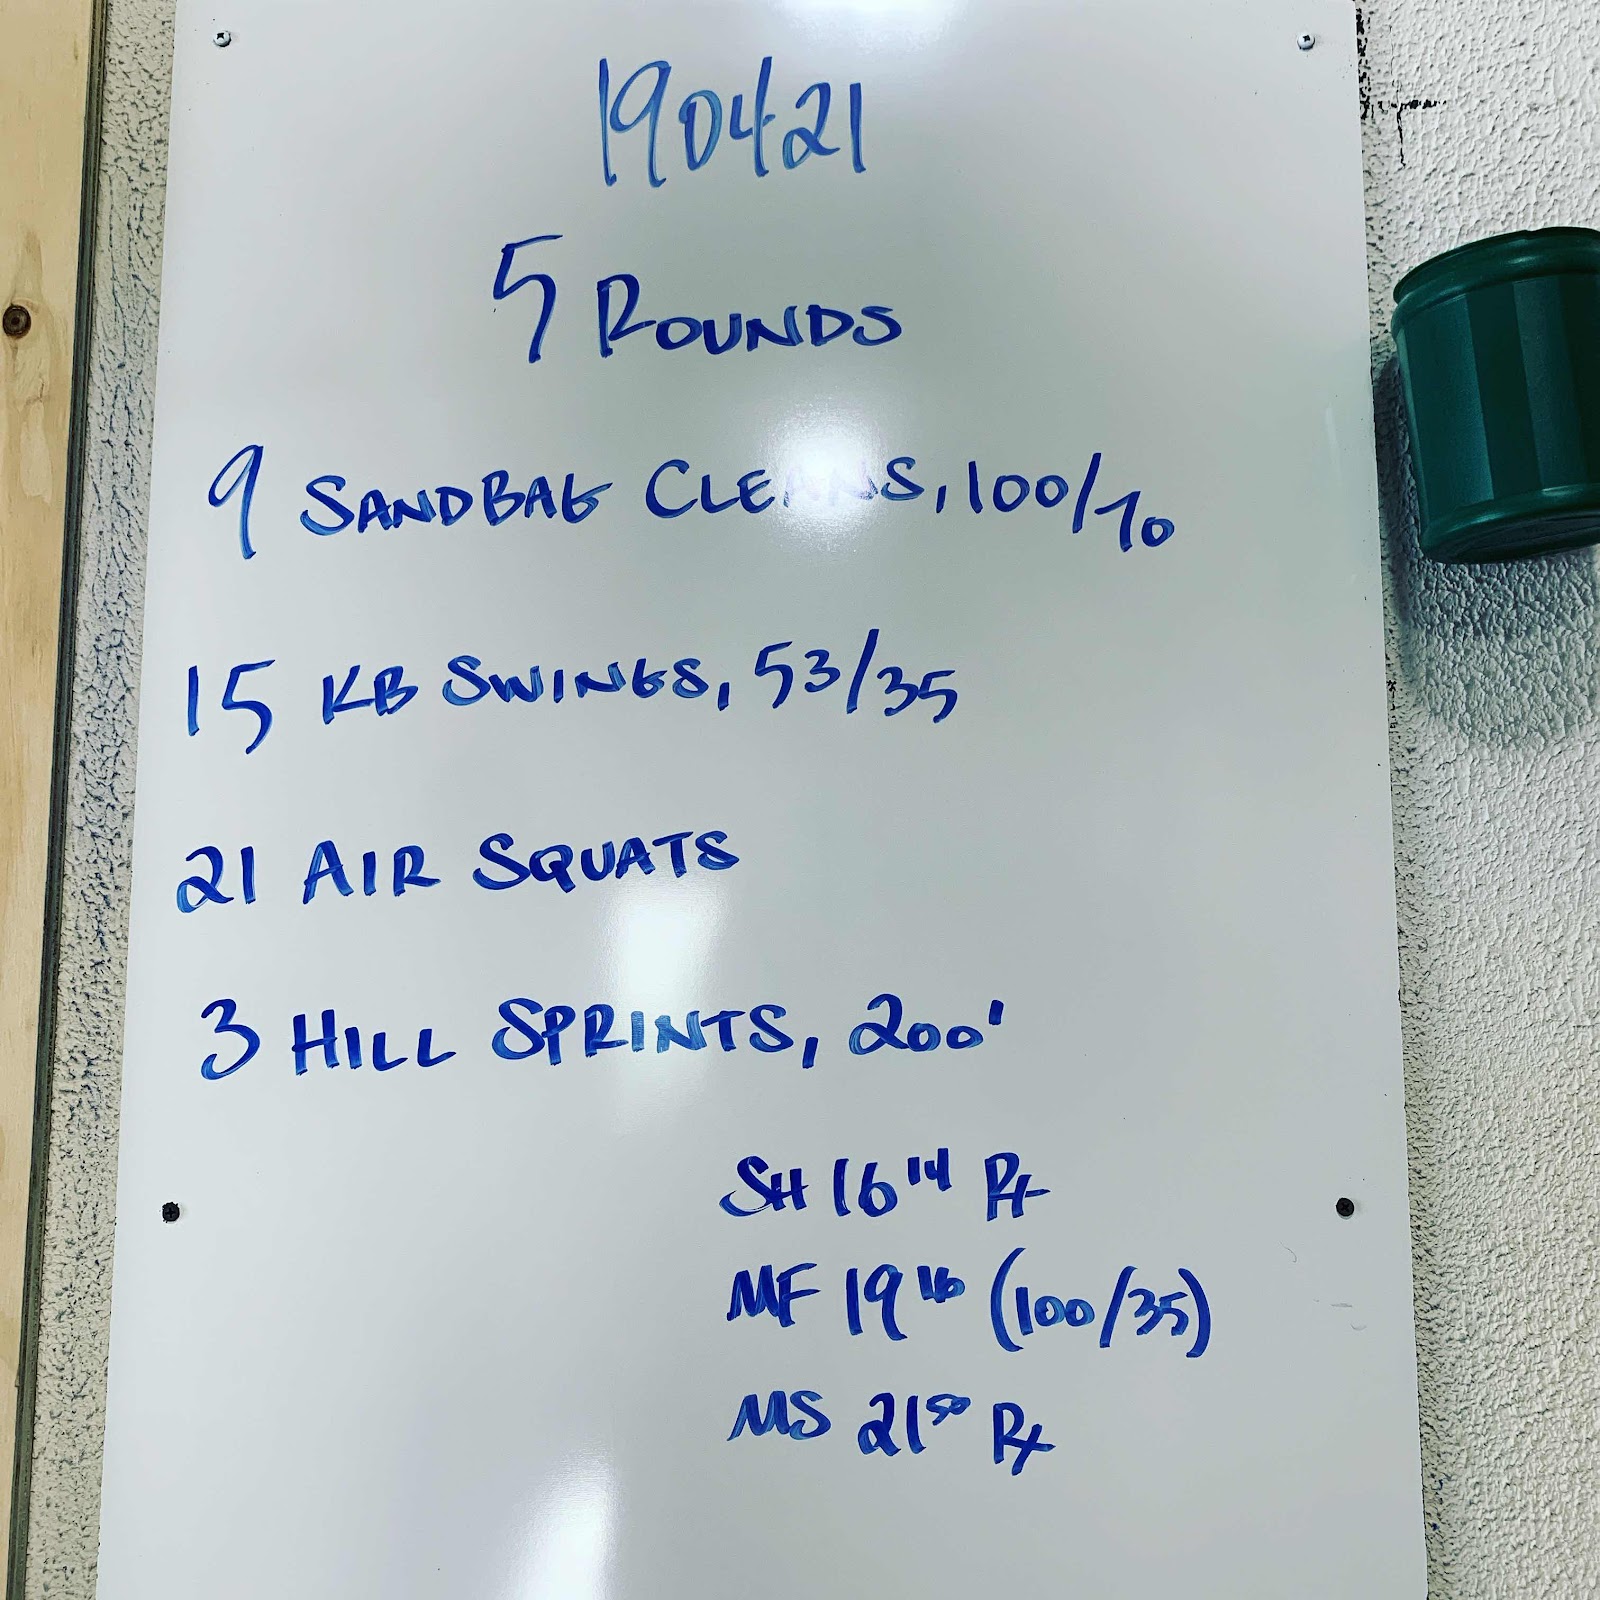 190421
5 ROUNDS
9 SANDBAG CLEANS, 100/70
15 KB SWINGS, 53/35
21 AIR SQUATS
3 HILL SPRINTS, 200'
SH 16 14 Rx
MF 19 16 (100/35)
MS 21 50 Rx